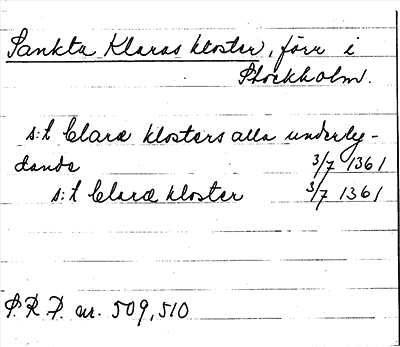 Sankta Klaras kloster, förr i
Stockholm.
s:t Claræ klosters alla underly-
dande 3/7 1361
s:t Claræ kloster 3/7 1361
S. R. P. nr. 509, 510